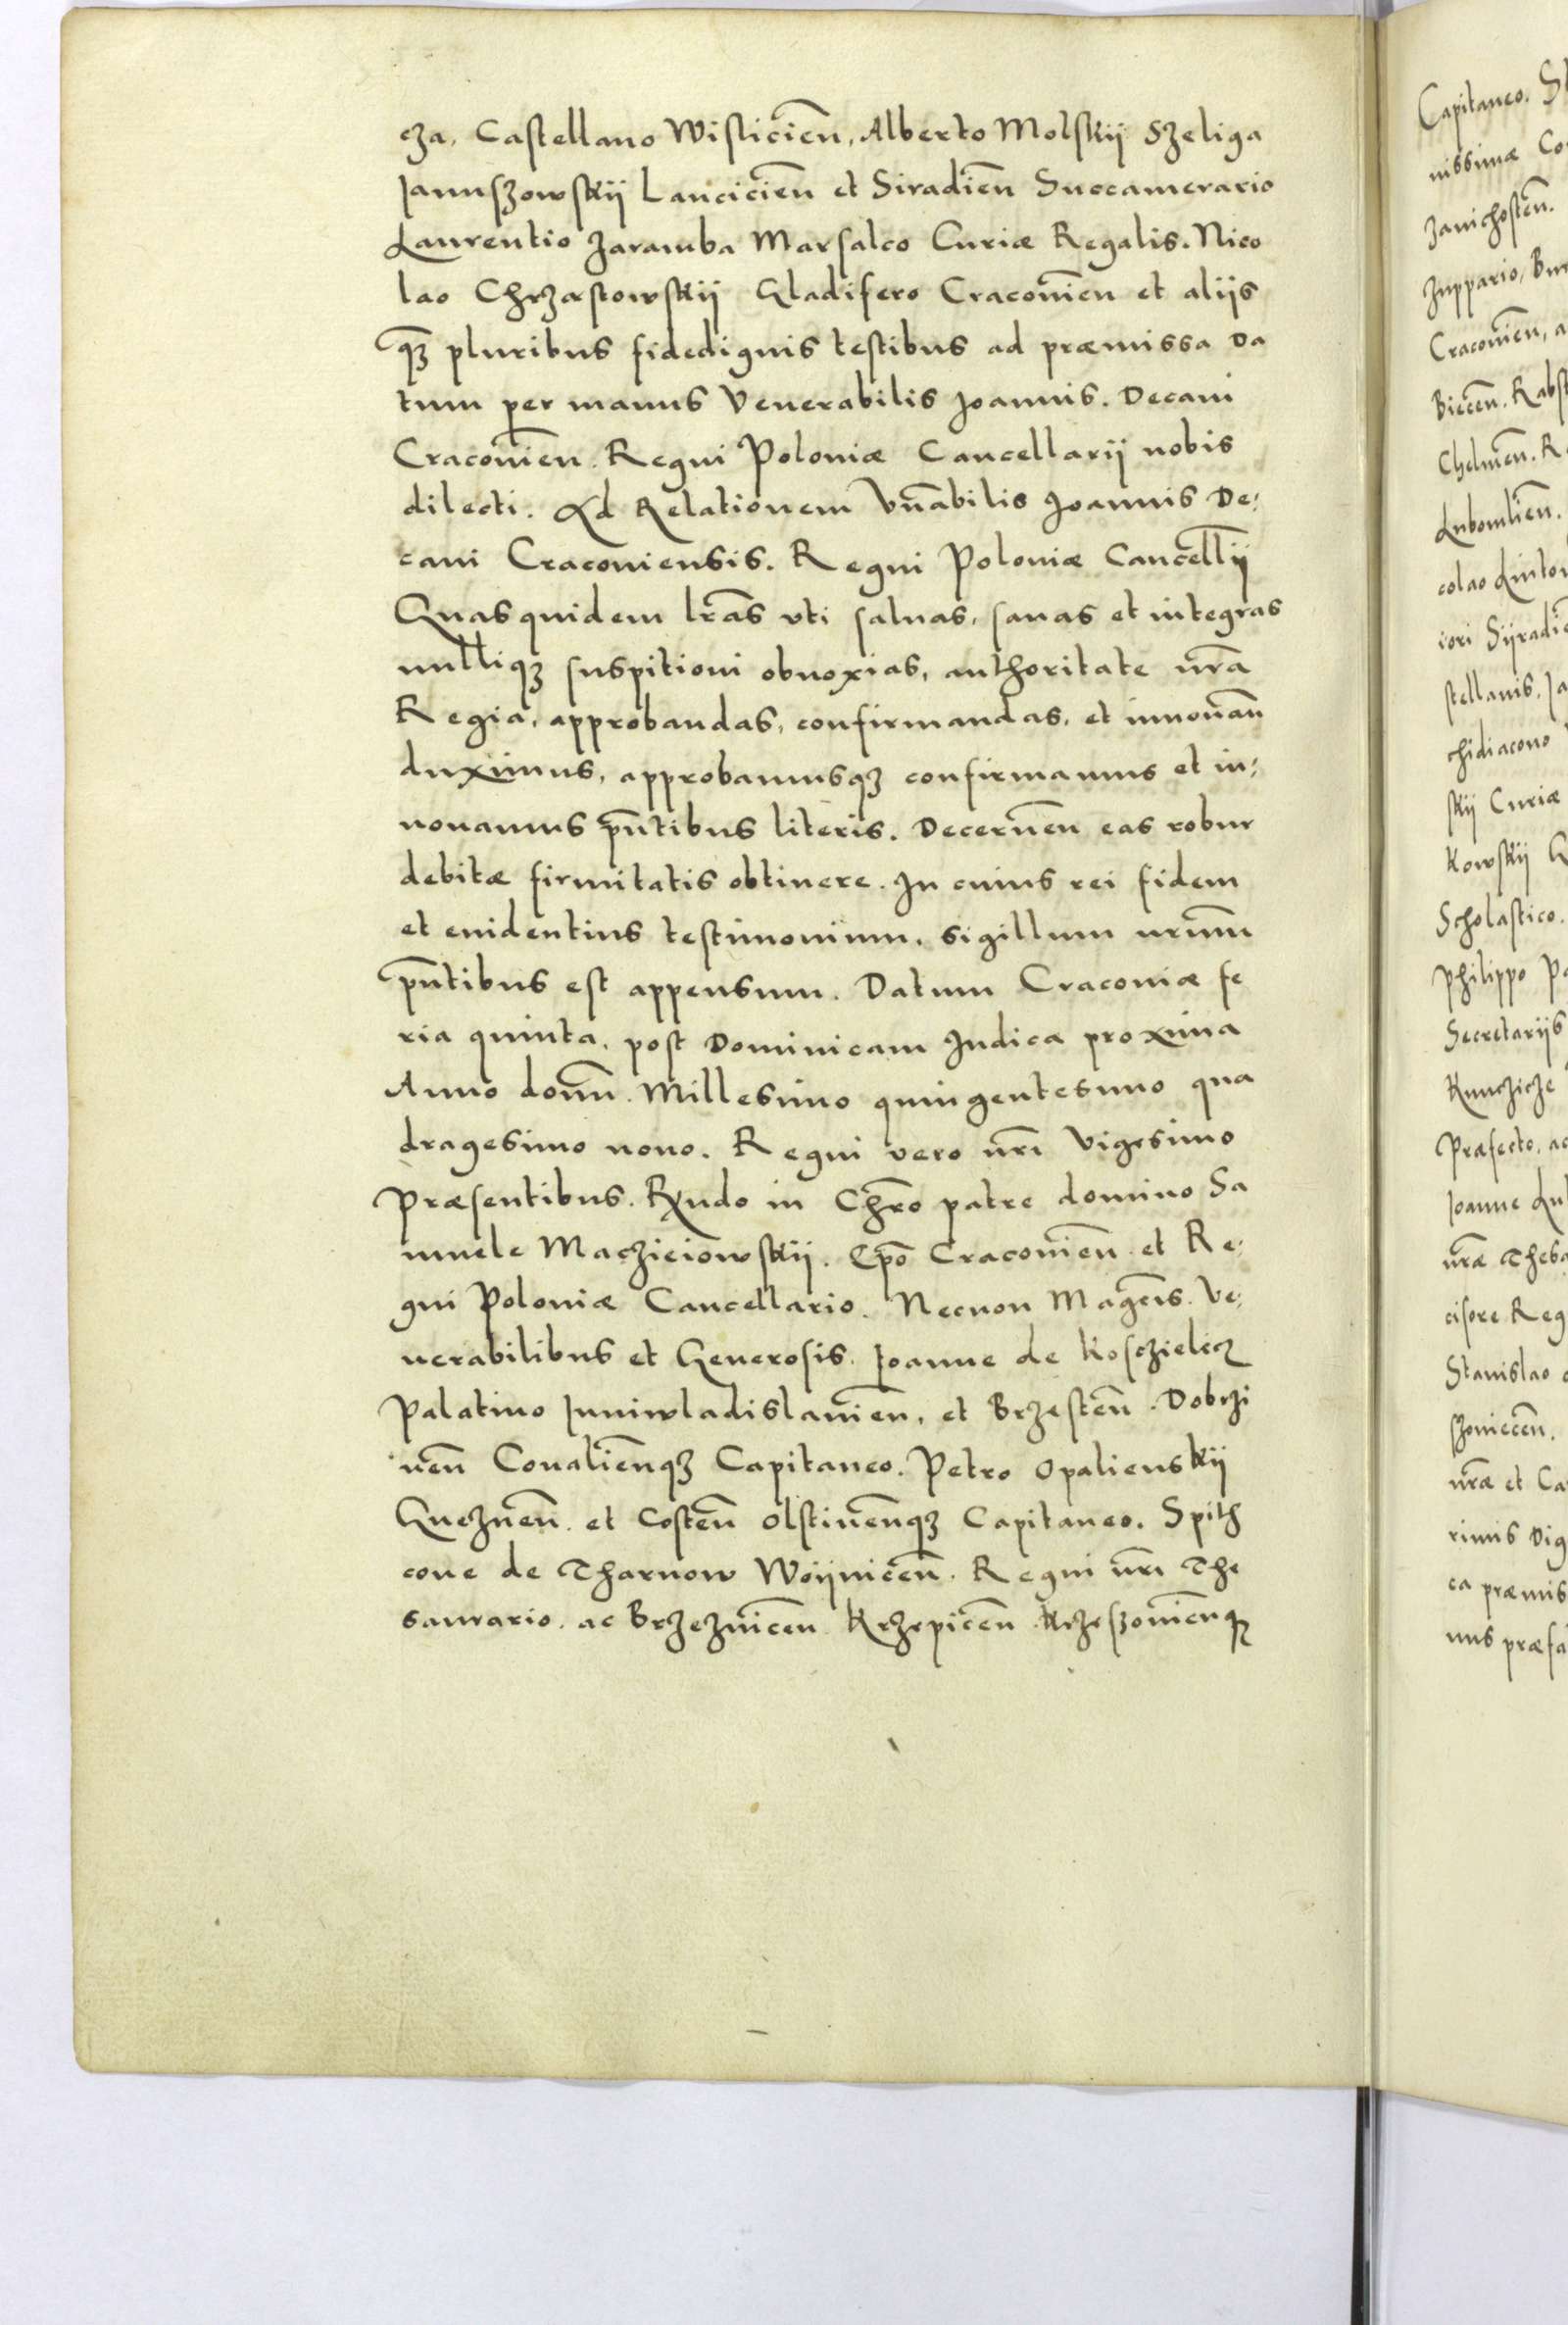 cza, Castellano Wisliciēn, Alberto Molskij Szeliga
Januszowskij Lanciciēn et Siradiēn Succamerario
Laurentio Zaramba Marsalco Curiæ Regalis. Nico
lao Chrzastowskij Gladifero Craconiēn et aliis
qꝫ pluribus fidedignis testibus ad præmissa Da
tum per manus Venerabilis Joannis. Decani
Craconiēn. Regni Poloniæ Cancellarij nobis
dilecti. Ad Relationem Vnābilis Joannis De:
cani Craconiensis. Regni Poloniæ Cancellīj
Quasquidem lrās vti saluas, sanas et integras
nulliqꝫ suspitioni obnoxias, authoritate nrā
Regia, approbandas, confirmandas, et innouān
duximus, approbamusqꝫ confirmamus et in:
nouamus pn̄tibus literis. Decernēn eas robur
debitæ firmitatis obtinere. In cuius rei fidem
et euidentius testimonium, sigillum nrūm
pn̄tibus est appensum. Datum Craconiæ fe
ria quinta, post Dominicam Judica proxima
Anno domī. Millesimo quingentesimo qua
dragesimo nono. Regni vero nrī Vigesimo
Præsentibus. Rn̄do in Chrō patre domino Sa
muele Maczieiowskij. Ep̄o Craconiēn. et Re:
gni Poloniæ Cancellario. Necnon Magcīs. Ve:
nerabilibus et Generosis. Joanne de Kosczielecz
Palatino Juniwladislauiēn, et Brzestēn. Dobrzi
nēn Coualiēnqꝫ Capitaneo. Petro Opalienskij
Gneznēn. et Costēn Olstinēnqꝫ Capitaneo. Spith
cone de Tharnow Woijnicēn. Regni nrī The
saurario. ac Brzeznicēn. Krzepicēn. Krzeszouiēnqꝫ
Capitaneo.
nissimæ
Zauichostēn.
Zuppario,
Craconiēn,
Biecēn.
Chelmēn.
Lubomliēn.
colao
iori
stellanis.
chidiacono
skij Curiæ
kowskij
Scholastico.
Philippo
Secretariis
Præfecto, ac
Joanne
nræ
cisore Reg
Stanislao
nrā et Ca
rimis Dig
ca præmis
nus præfa